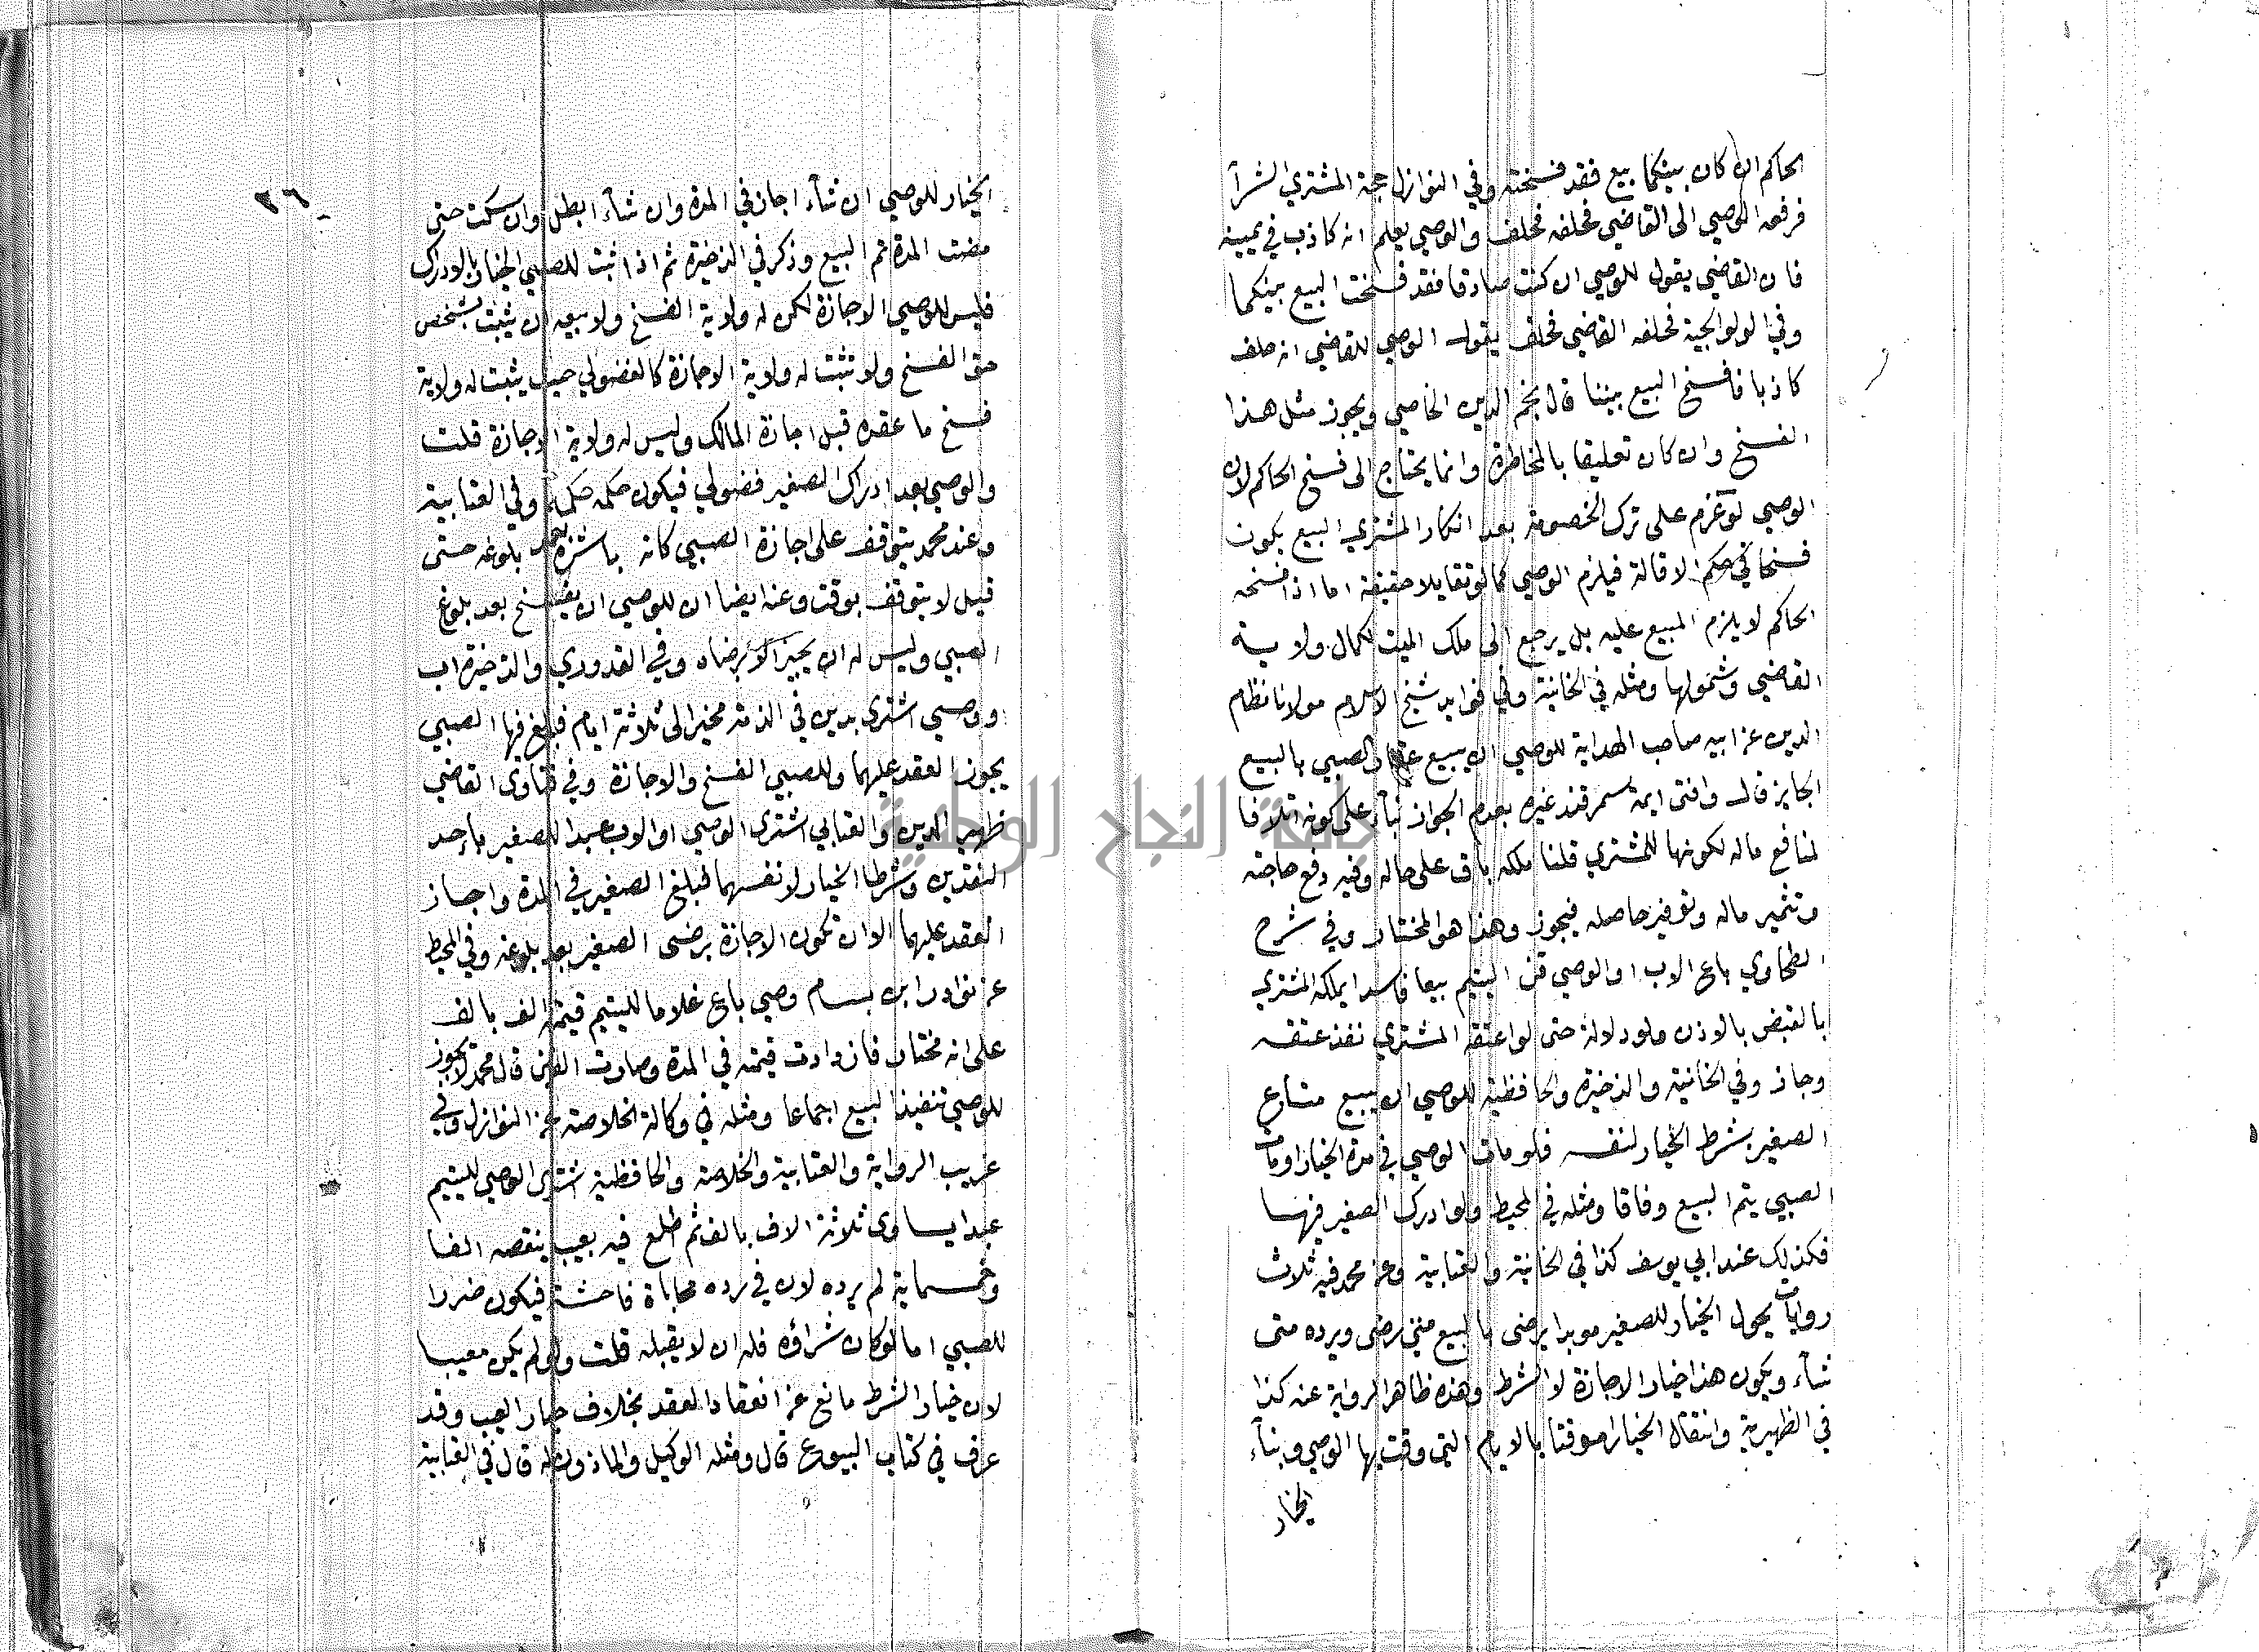 الحاكم ان كان بينكما بيع فقد فسخته وفي النوازل حجة المشتري الشرآ
فرفعه الوصي الى القاضي فحلفه فحلف والوصي يعلم انه كاذب في يمينه
فان القاضي يقول للوصي ان كنت صادقا فقد فسخت البيع بينكما
وفي الولوالجية فحلفه القاضي فحلف يقول الوصي للقاضي انه حلف
كاذبا فافسخ البيع بيننا قال نجم الدين الخاصي ويجوز مثل هذا
الفسخ وان كان تعليقا بالمخاطرة وانما يحتاج الى فسخ الحاكم لان
الوصي لو عزم على ترك الخصومة بعد انكار المشتري البيع يكون
فسخا في حكم الاقالة فيلزم الوصي كما لو تقايلا حقيقة اما اذا فسخه
الحاكم لا يلزم المبيع عليه بل يرجع الى ملك الميت لكمال ولاية
القاضي وشمولها ومثله في الخانية وفي فوايد شيخ الاسلام مولانا نظام
الدين عن ابيه صاحب الهداية للوصي ان يبيع عقار الصبي بالبيع
الجايز قال وافتى ايمة سمرقند غيره بعدم الجواز بناء على كونه اتلافا
لمنافع ماله لكونها للمشتري قلنا ملكه باق على حاله وفيه دفع حاجته
وتثمير ماله وتوفير حاصله فيجوز وهذا هو المختار وفي شرح
الطحاوي باع الاب او الوصي قن اليتيم بيعا فاسدا يملكه المشتري
بالقبض بالاذن ولو دلالة حتى لو اعتقه المشتري نفذ عتقه
وجاز وفي الخانية والذخيرة والحافظية للوصي ان يبيع متاع
الصغير بشرط الخيار لنفسه فلو مات الوصي في مدة الخيار او مات
الصبي يتم البيع وفاقا ومثله في المحيط ولو ادرك الصغير فيها
فكذلك عند ابي يوسف كذا في الخانية والعتابية وعن محمد فيه ثلاث
روايات يحول الخيار للصغير موبدا يرضى بالبيع متى رضى ويرده متى
شآء ويكون هذا خيار الاجازة لا الشرط وهذه ظاهر الرواية عنه كذا
في الظهيرية وانتقال الخيار موقتا بالايام التي وقت بها الوصي وبنآء
الخيار
٣٦
الخيار للوصي ان شآء اجاز في المدة وان شآء ابطل وان سكت حتى
مضت المدة تم البيع وذكر في الذخيرة ثم اذا ثبت للصبي الخيار بالادراك
فليس للوصي الاجازة لكن له ولاية الفسخ ولا يبعد ان يثبت لشخص
حق الفسخ ولا تثبت له ولاية الاجازة كالفضولي حيث يثبت له ولاية
فسخ ما عقده قبل اجازة المالك وليس له ولاية الاجازة قلت
والوصي بعد ادراك الصغير فضولي فيكون حكمه حكمه وفي العتابية
وعند محمد يتوقف على اجازة الصبي كانه باشره بعد بلوغه حتى
قيل لا يتوقف بوقت وعنه ايضا ان للوصي ان يفسخ بعد بلوغ
الصبي وليس له ان يجيز الا برضاه وفي القدوري والذخيرة اب
ووصي اشترى بدين في الذمة مخيرا الى ثلاثة ايام فبلغ فيها الصبي
يجوز العقد عليهما وللصبي الفسخ والاجازة وفي فتاوى القاضي
ظهير الدين والعتابي اشترى الوصي او الاب عبدا للصغير باحد
النقدين وشرطا الخيار لانفسهما فبلغ الصغير في المدة واجاز
العقد عليهما الا ان تكون الاجازة برضى الصغير بعد بلوغه وفي المحيط
عن نوادر ابن بسام وصي باع غلاما لليتيم قيمته الف بالف
على انه مختار فازدادت قيمته في المدة وصارت الفين قال محمد لا يجوز
للوصي تنفيذ البيع اجماعا ومثله في وكالة الخلاصة عن النوازل وفي
غريب الرواية والعتابية والخلاصة والحافظية اشترى الوصي لليتيم
عبدا يساوى ثلاثة الاف بالف ثم اطلع فيه بعيب ينقصه الفا
وخمسماية لم يرده لان في رده محاباة فاحشة فيكون ضررا
للصبي اما لو كان شراؤه فله ان لا يقبله قلت ولو لم يكن معيبا
لان خيار الشرط مانع عن انعقاد العقد بخلاف خيار العيب وقد
عرف في كتاب البيوع قال ومثله الوكيل والماذون له قال في العتابية
جامعة النجاح الوطنية